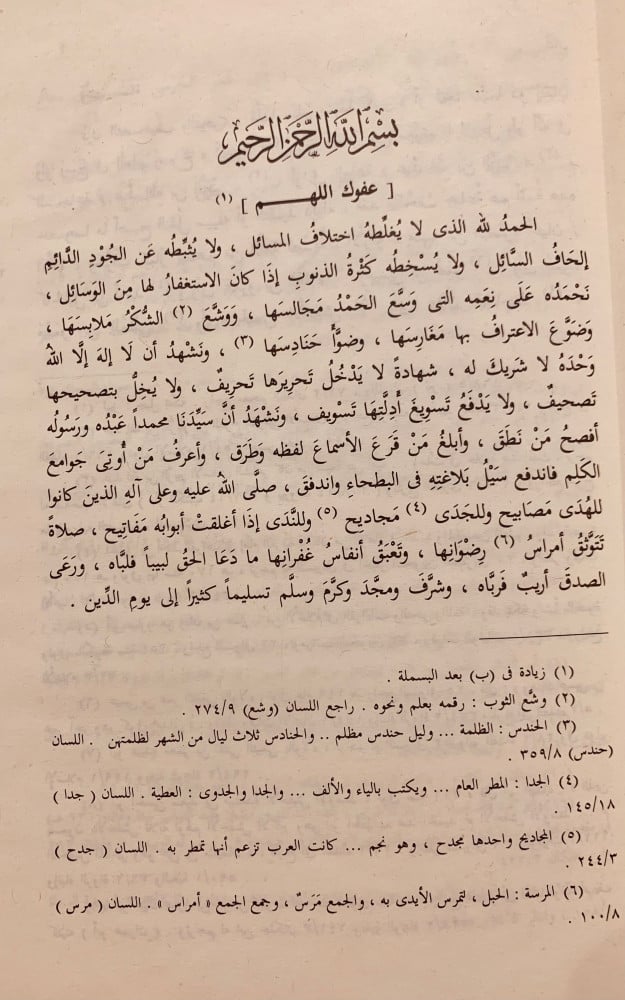 بِسْمِ اللَّهِ الرَّحْمَٰنِ الرَّحِيمِ
[ عفوك اللهــم ] (١)
الحمدُ لله الذى لا يُغلِّطهُ اختلافُ المسائل ، ولا يُثبِّطُه عَن الجُودِ الدَّائِمِ
إلحَافُ السَّائِل ، ولا يُسْخِطُه كَثْرةُ الذنوبِ إذَا كانَ الاستغفارُ لها مِنَ الوَسَائِل ،
نَحْمَدُه عَلَى نِعَمِه التى وَسَّعَ الحَمْدُ مَجَالسَها ، وَوَشَّعَ (٢) الشُّكْرُ مَلابِسَهَا ،
وَضَوَّعَ الاعترافُ بها مغَارِسَها ، وضوَّأَ حَنَادِسَها (٣) ، ونَشْهدُ أن لا إلهَ إلَّا اللهُ
وَحْدَهُ لا شريكَ له ، شهادةً لا يَدْخُلُ تَحرِيرَها تَحريفٌ ، ولا يُخِلُّ بتصحيحها
تَصحيفٌ ، ولا يَدْفَعُ تَسْويغَ أدِلَّتِهَا تَسْويف ، ونَشْهَدُ أنَّ سَيِّدَنَا محمداً عَبْدُه ورَسُولُه
أفصحُ مَنْ نَطَقَ ، وأبلغُ مَنْ قَرَعَ الأسماعَ لفظه وَطَرَق ، وأعرفُ مَنْ أُوتِىَ جَوامعَ
الكَلِم فاندفع سَيْلُ بَلاغتِهِ فى البطحاءِ واندفقَ ، صلَّى اللهُ عليه وعلى آلهِ الذينَ كانوا
للهُدَى مَصَابيح وللجَدَى (٤) مَجاديح (٥) وللنَّدَى إذَا أغلقتْ أبوابُه مَفَاتِيح ، صلاةً
تَتَوَثَّقُ أمراسُ (٦) رِضْوَانِها ، وتَعْبَقُ أنفاسُ غُفْرانِها ما دَعَا الحقُ لبيباً فلبَّاه ، ورَعَى
الصدقَ أريبٌ فَربَّاه ، وشرَّفَ ومجَّدَ وكرَّمَ وسلَّم تسليماً كثيراً إلى يومِ الدِّين .
(١) زيادة فى (ب) بعد البسملة .
(٢) وشَّع الثوب : رقمه بعلم ونحوه . راجع اللسان (وشع) ٢٧٤/٩ .
(٣) الحندس : الظلمة ... وليل حندس مظلم .. والحنادس ثلاث ليال من الشهر لظلمتهن . اللسان
(حندس) ٣٥٩/٨ .
(٤) الجدا : المطر العام ... ويكتب بالياء والألف ... والجدا والجدوى : العطية . اللسان ( جدا )
١٤٥/١٨ .
(٥) المجاديح واحدها مجدح ، وهو نجم ... كانت العرب تزعم أنها تمطر به . اللسان ( جدح )
٢٤٤/٣ .
(٦) المرسة : الحبل ، لتمرس الأيدى به ، والجمع مَرَسٌ ، وجمع الجمع « أمراس » . اللسان ( مرس )
١٠٠/٨ .